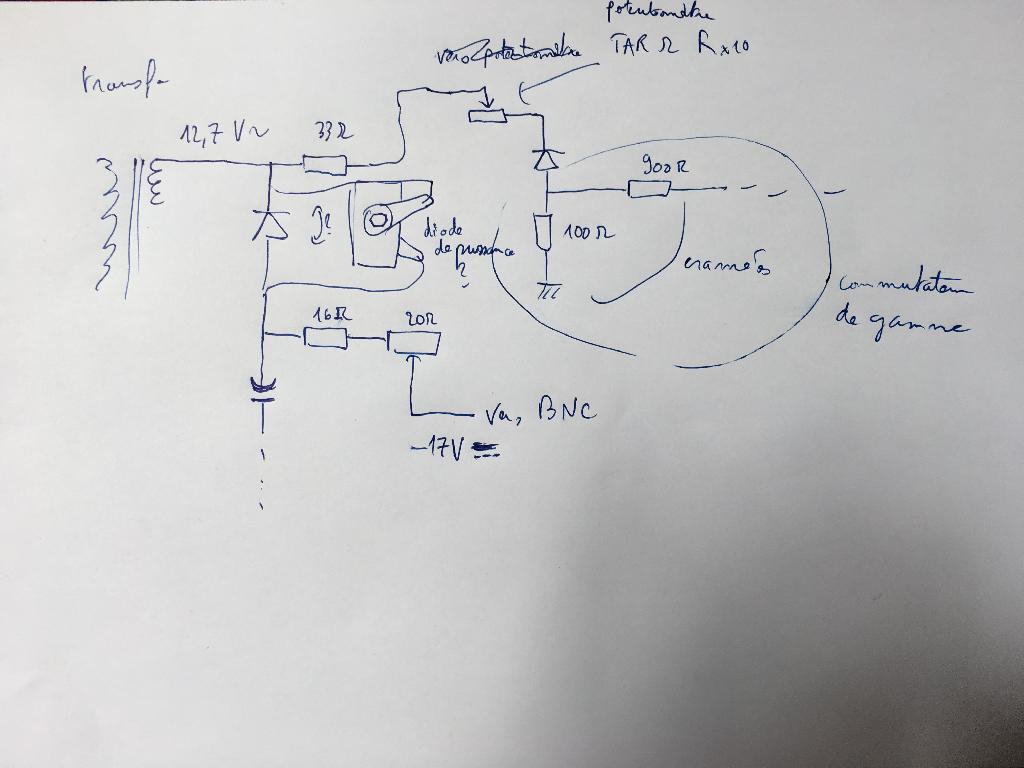 potentiomètre
TAR Ω Rx10
vers potentiomètre
transfo
12,7 V~
33Ω
900Ω
100Ω
?
diode
de puissance
?
cramées
commutateur
de gamme
16Ω
20Ω
BNC
-17V